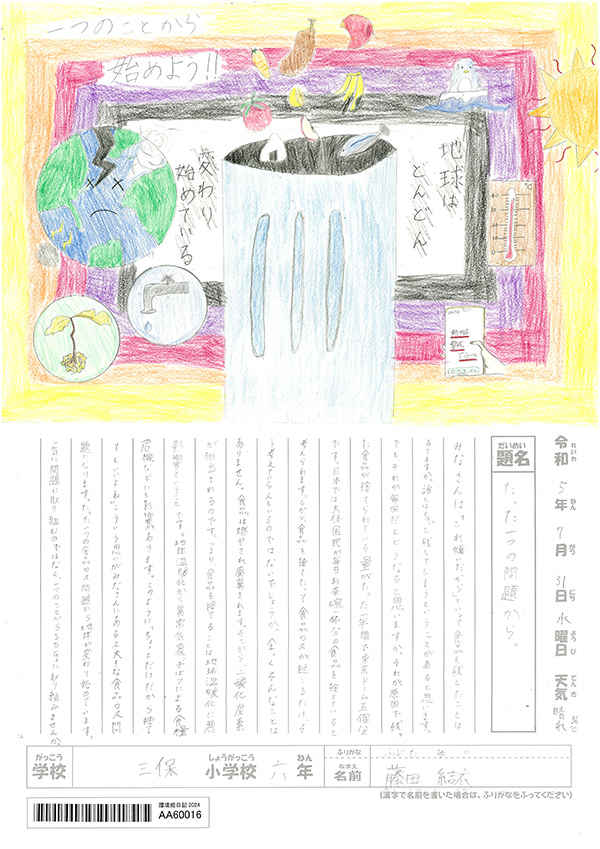 一つのことから
始めよう!!
地球は
どんどん
変わり
始めている
令和5年7月31日水曜日 天気 晴れ
れいわ ねん がつ にち ようび てんき
だいめい
題名
たった一つの問題から、
みなさんは「これ嫌いだから」といって食品を残したことは
ありますか。誰しも一度は残してしまうということがあると思います。
でも、それが毎回だとどうなると思いますか。それが原因で残っ
た食品が捨てられていく量がたった一年間で東京ドーム五個分
です。日本では大体国民が毎日お茶碗一杯分の食品を捨てていると
考えられます。しかし、食品を捨てたって食品ロスが起こるだけ、そ
う考えている人もいるのではないでしょうか。全くそんなことは
ありません。食品は燃やされ廃棄されます。そこから二酸化炭素
が排出されるのです。つまり、食品を捨てることは地球温暖化に悪
影響ということです。地球温暖化が異常気象、干ばつによる食糧
危機などにも影響があります。このように「ちょっとだけだから捨て
てもいいよね」こういう思いがみなさんにあると大きな食品ロス問
題になります。たった一つの食品ロス問題から地球が変わり始めています。
一気に問題に取り組むのではなく、一つのことからSDGsに取り組みませんか。
がっこう しょうがっこう ねん
学校 三保 小学校 六年
ふりがな ふじた ゆい
なまえ
名前 藤田 結衣
(漢字で名前を書いた場合は、ふりがなをふってください)
環境絵日記2024
AA60016